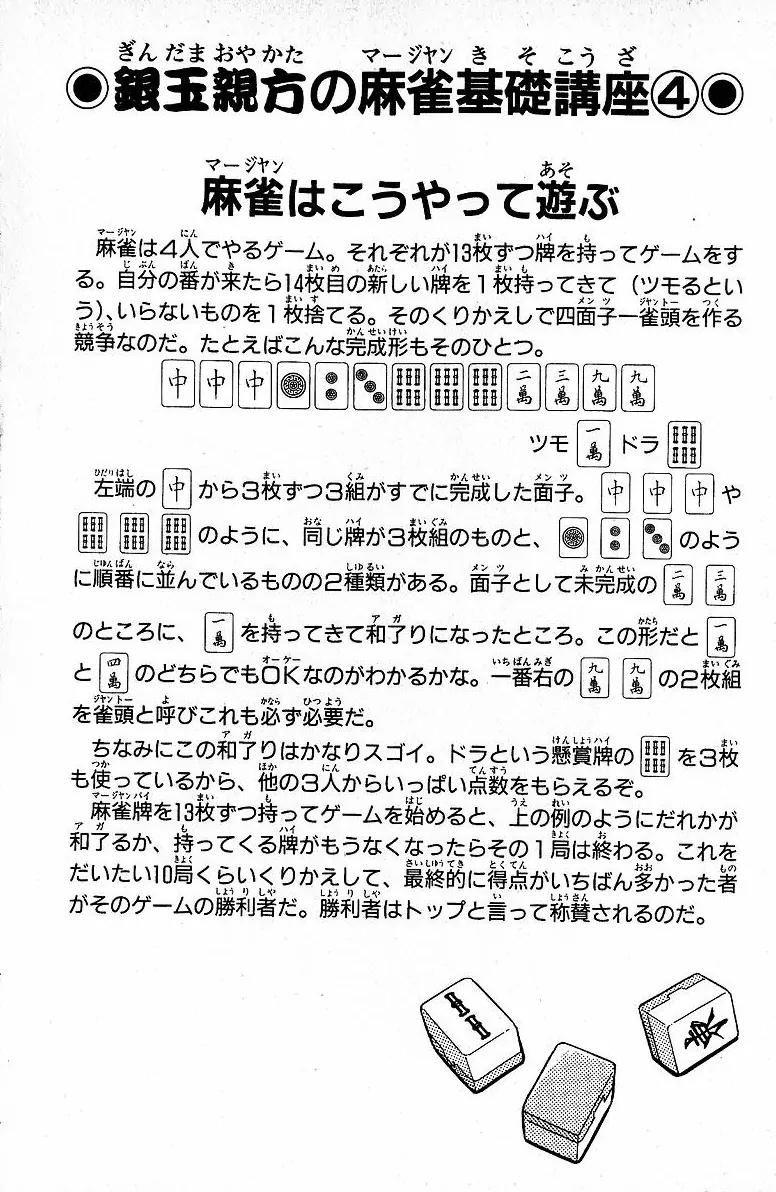 ◉銀玉親方の麻雀基礎講座④◉
麻雀はこうやって遊ぶ
麻雀は4人でやるゲーム。それぞれが13枚ずつ牌を持ってゲームをす
る。自分の番が来たら14枚目の新しい牌を1枚持ってきて（ツモるとい
う）、いらないものを1枚捨てる。そのくりかえしで四面子一雀頭を作る
競争なのだ。たとえばこんな完成形もそのひとつ。
中 中 中 二萬 三萬 九萬 九萬
ツモ 一萬 ドラ
左端の 中 から3枚ずつ3組がすでに完成した面子。 中 中 中 や
のように、同じ牌が3枚組のものと、 のよう
に順番に並んでいるものの2種類がある。面子として未完成の 二萬 三萬
のところに、 一萬 を持ってきて和了りになったところ。この形だと 一萬
と 四萬 のどちらでもOKなのがわかるかな。一番右の 九萬 九萬 の2枚組
を雀頭と呼びこれも必ず必要だ。
ちなみにこの和了りはかなりスゴイ。ドラという懸賞牌の を3枚
も使っているから、他の3人からいっぱい点数をもらえるぞ。
麻雀牌を13枚ずつ持ってゲームを始めると、上の例のようにだれかが
和了るか、持ってくる牌がもうなくなったらその1局は終わる。これを
だいたい10局くらいくりかえして、最終的に得点がいちばん多かった者
がそのゲームの勝利者だ。勝利者はトップと言って称賛されるのだ。